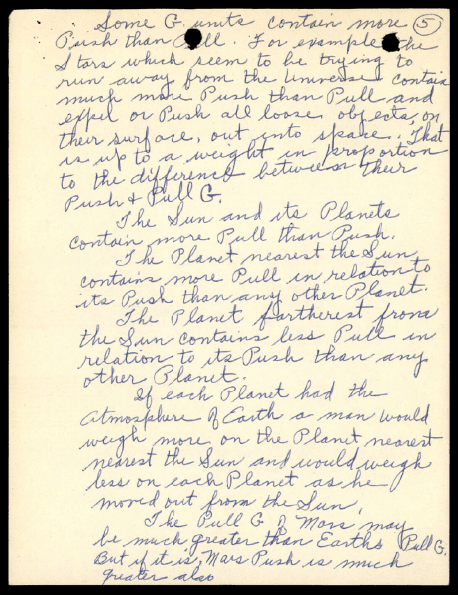 Some G. units contain more (5)
Push than Pull. For example the
Stars which seem to be trying to
run away from the Universe contain
much more Push than Pull and
expel or Push all loose objects, on
their surface, out into space. That
is up to a weight in proportion
to the difference between their
Push & Pull G.
The Sun and its Planets
contain more Pull than Push.
The Planet nearest the Sun
contains more Pull in relation to
its Push than any other Planet.
The Planet fartherest from
the Sun contains less Pull in
relation to its Push than any
other Planet.
If each Planet had the
Atmosphere of Earth a man would
weigh more on the Planet nearest
nearest the Sun and would weigh
less on each Planet as he
moved out from the Sun.
The Pull G of Mars may
be much greater than Earths Pull G.
But if it is, Mars Push is much
greater also